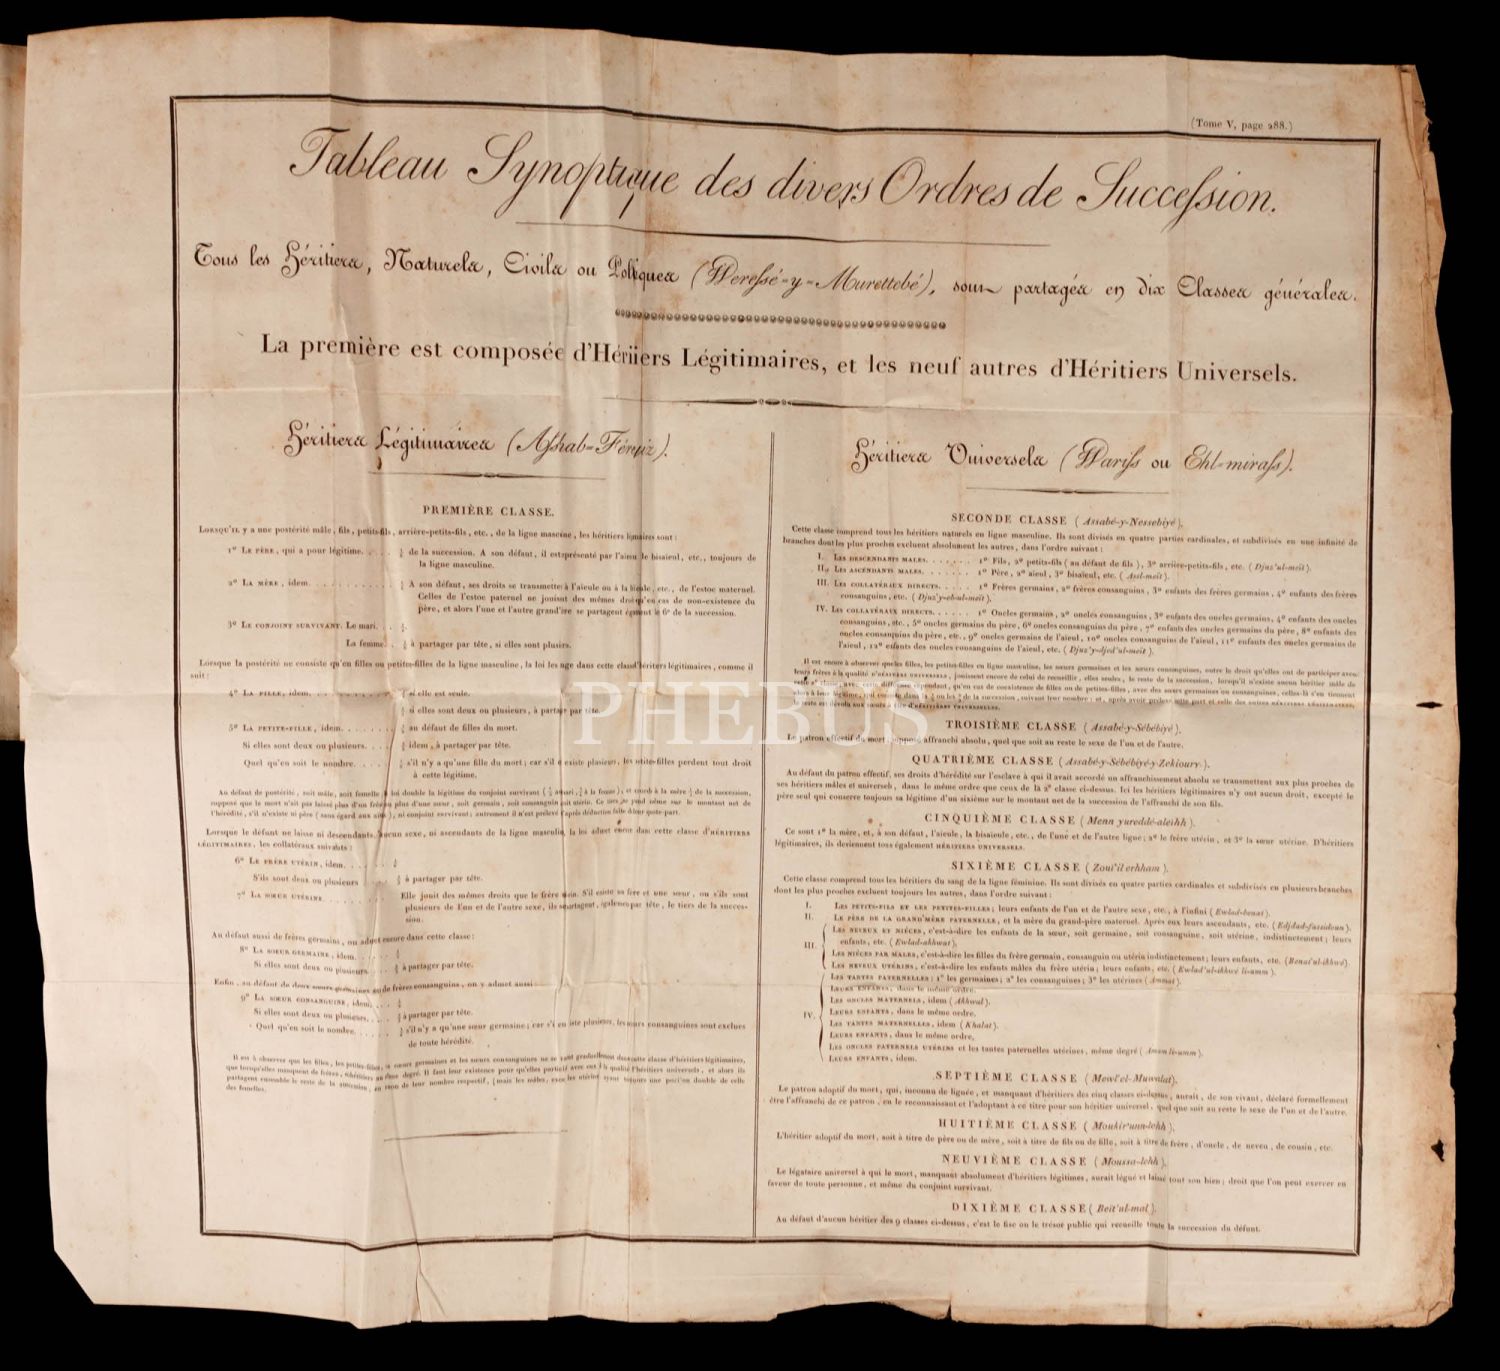 (Tome V, page 288.)
Tableau Synoptique des divers Ordres de Succession.
Tous les Héritiers, Naturels, Civils ou Politiques (Weressé-y-Murettebé), sont partagés en dix Classes générales.
La première est composée d'Héritiers Légitimaires, et les neuf autres d'Héritiers Universels.
Héritiers Légitimaires (Asshab-Féreyiz).
PREMIÈRE CLASSE.
LORSQU'IL y a une postérité mâle, fils, petits-fils, arrière-petits-fils, etc., de la ligne masculine, les héritiers légitimaires sont :
1° LE PÈRE, qui a pour légitime. . . . . de la succession. A son défaut, il est représenté par l'aïeul, le bisaïeul, etc., toujours de
la ligne masculine.
2° LA MÈRE, idem. . . . . A son défaut, ses droits se transmettent à l'aïeule ou à la bisaïeule, etc., de l'estoc maternel.
Celles de l'estoc paternel ne jouissent des mêmes droits qu'en cas de non-existence du
père, et alors l'une et l'autre grand'mère se partagent également le 6e de la succession.
3° LE CONJOINT SURVIVANT. Le mari. . .
La femme. . à partager par tête, si elles sont plusieurs.
Lorsque la postérité ne consiste qu'en filles ou petites-filles de la ligne masculine, la loi les range dans cette classe d'héritiers légitimaires, comme il
suit :
4° LA FILLE, idem. . . . . si elle est seule.
si elles sont deux ou plusieurs, à partager par tête.
5° LA PETITE-FILLE, idem. . . . . au défaut de filles du mort.
Si elles sont deux ou plusieurs. . . . . idem, à partager par tête.
Quel qu'en soit le nombre. . . . . s'il n'y a qu'une fille du mort ; car s'il en existe plusieurs, les petites-filles perdent tout droit
à cette légitime.
Au défaut de postérité, soit mâle, soit femelle, la loi double la légitime du conjoint survivant (½ au mari, ¼ à la femme), et accorde à la mère ⅓ de la succession,
supposé que le mort n'ait pas laissé plus d'un frère ou plus d'une sœur, soit germain, soit consanguin, soit utérin. Ce tiers se prend même sur le montant net de
l'hérédité, s'il n'existe ni père (sans égard aux aïeux), ni conjoint survivant ; autrement il n'est prélevé qu'après déduction faite de leur quote-part.
Lorsque le défunt ne laisse ni descendants d'aucun sexe, ni ascendants de la ligne masculine, la loi admet encore dans cette classe d'HÉRITIERS
LÉGITIMAIRES, les collatéraux suivants :
6° LE FRÈRE UTÉRIN, idem. . . . .
S'ils sont deux ou plusieurs . . . . à partager par tête.
7° LA SŒUR UTÉRINE . . . . . Elle jouit des mêmes droits que le frère utérin. S'il existe un frère et une sœur, ou s'ils sont
plusieurs de l'un et de l'autre sexe, ils se partagent, également par tête, le tiers de la succes-
sion.
Au défaut aussi de frères germains, on admet encore dans cette classe :
8° LA SŒUR GERMAINE, idem. . . .
Si elles sont deux ou plusieurs. . . . à partager par tête.
Enfin, au défaut de deux sœurs germaines ou de frères consanguins, on y admet aussi
9° LA SŒUR CONSANGUINE, idem. . .
Si elles sont deux ou plusieurs. . . . à partager par tête.
Quel qu'en soit le nombre. . . . . s'il n'y a qu'une sœur germaine ; car s'il en existe plusieurs, les sœurs consanguines sont exclues
de toute hérédité.
Il est à observer que les filles, les petites-filles, les sœurs germaines et les sœurs consanguines ne se
Héritiers Universels (Wariss ou Ehl-mirass).
SECONDE CLASSE (Assabé-y-Nessebiyé).
Cette classe comprend tous les héritiers naturels en ligne masculine. Ils sont divisés en quatre parties cardinales, et subdivisés en une infinité de
branches dont les plus proches excluent absolument les autres, dans l'ordre suivant :
I. LES DESCENDANTS MALES. . . . . . . 1° Fils, 2° petits-fils (au défaut de fils), 3° arrière-petits-fils, etc. (Djuz'ul-meït).
II. LES ASCENDANTS MALES. . . . . . . 1° Père, 2° aïeul, 3° bisaïeul, etc. (Assl-meït).
III. LES COLLATÉRAUX DIRECTS. . . . . . 1° Frères germains, 2° frères consanguins, 3° enfants des frères germains, 4° enfants des frères
consanguins, etc. (Djuz'y-eb-ul-meït).
IV. LES COLLATÉRAUX DIRECTS. . . . . . 1° Oncles germains, 2° oncles consanguins, 3° enfants des oncles germains, 4° enfants des oncles
consanguins, etc., 5° oncles germains du père, 6° oncles consanguins du père, 7° enfants des oncles germains du père, 8° enfants des
oncles consanguins du père, etc., 9° oncles germains de l'aïeul, 10° oncles consanguins de l'aïeul, 11° enfants des oncles germains de
l'aïeul, 12° enfants des oncles consanguins de l'aïeul, etc. (Djuz'y-djed'ul-meït).
Il est encore à observer que les filles, les petites-filles en ligne masculine, les sœurs germaines et les sœurs consanguines, outre le droit qu'elles ont de participer avec
leurs frères à la qualité d'HÉRITIERS UNIVERSELS, jouissent encore de celui de recueillir, elles seules, le reste de la succession, lorsqu'il n'existe aucun héritier mâle de
TROISIÈME CLASSE (Assabé-y-Sébébiyé).
Le patron effectif du mort, supposé affranchi absolu, quel que soit au reste le sexe de l'un et de l'autre.
QUATRIÈME CLASSE (Assabé-y-Sébébiyé-y-Zekioury).
Au défaut du patron effectif, ses droits d'hérédité sur l'esclave à qui il avait accordé un affranchisement absolu se transmettent aux plus proches de
ses héritiers mâles et universels, dans le même ordre que ceux de la 2e classe ci-dessus. Ici les héritiers légitimaires n'y ont aucun droit, excepté le
père seul qui conserve toujours sa légitime d'un sixième sur le montant net de la succession de l'affranchi de son fils.
CINQUIÈME CLASSE (Menn yureddé-aleïhh).
Ce sont 1° la mère, et, à son défaut, l'aïeule, la bisaïeule, etc., de l'une et de l'autre ligne ; 2° le frère utérin, et 3° la sœur utérine. D'héritiers
légitimaires, ils deviennent tous également HÉRITIERS UNIVERSELS.
SIXIÈME CLASSE (Zouï'il erhham).
Cette classe comprend tous les héritiers du sang de la ligne féminine. Ils sont divisés en quatre parties cardinales et subdivisés en plusieurs branches
dont les plus proches excluent toujours les autres, dans l'ordre suivant :
I. LES PETITS-FILS ET LES PETITES-FILLES ; leurs enfants de l'un et de l'autre sexe, etc., à l'infini (Ewlad-benat).
II. LE PÈRE DE LA GRAND'MÈRE PATERNELLE, et la mère du grand-père maternel. Après eux leurs ascendants, etc. (Edjdad-fassidoun).
III. LES NEVEUX ET NIÈCES, c'est-à-dire les enfants de la sœur, soit germaine, soit consanguine, soit utérine, indistinctement ; leurs
enfants, etc. (Ewlad-akhwat).
LES NIÈCES PAR MALES, c'est-à-dire les filles du frère germain, consanguin ou utérin indistinctement ; leurs enfants, etc. (Benat'ul-ikhwé).
LES NEVEUX UTÉRINS, c'est-à-dire les enfants mâles du frère utérin ; leurs enfants, etc. (Ewlad'ul-ikhwé li-umm).
IV. LES TANTES PATERNELLES ; 1° les germaines ; 2° les consanguines ; 3° les utérines (Ammat).
LEURS ENFANTS, dans le même ordre.
LES ONCLES MATERNELS, idem (Akhwal).
LEURS ENFANTS, dans le même ordre.
LES TANTES MATERNELLES, idem (Khalat).
LEURS ENFANTS, dans le même ordre.
LES ONCLES PATERNELS UTÉRINS et les tantes paternelles utérines, même degré (Amm li-umm).
LEURS ENFANTS, idem.
SEPTIÈME CLASSE (Mewl'el-Muwalat).
Le patron adoptif du mort, qui, inconnu de lignée, et manquant d'héritiers des cinq classes ci-dessus, aurait, de son vivant, déclaré formellement
être l'affranchi de ce patron, en le reconnaissant et l'adoptant à ce titre pour son héritier universel, quel que soit au reste le sexe de l'un et de l'autre.
HUITIÈME CLASSE (Moukir'unn-lehh).
L'héritier adoptif du mort, soit à titre de père ou de mère, soit à titre de fils ou de fille, soit à titre de frère, d'oncle, de neveu, de cousin, etc.
NEUVIÈME CLASSE (Moussa-lehh).
Le légataire universel à qui le mort, manquant absolument d'héritiers légitimes, aurait légué et laissé tout son bien ; droit que l'on peut exercer en
faveur de toute personne, et même du conjoint survivant.
DIXIÈME CLASSE (Beït'ul-mal).
Au défaut d'aucun héritier des 9 classes ci-dessus, c'est le fisc ou le trésor public qui recueille toute la succession du défunt.
PHEBUS